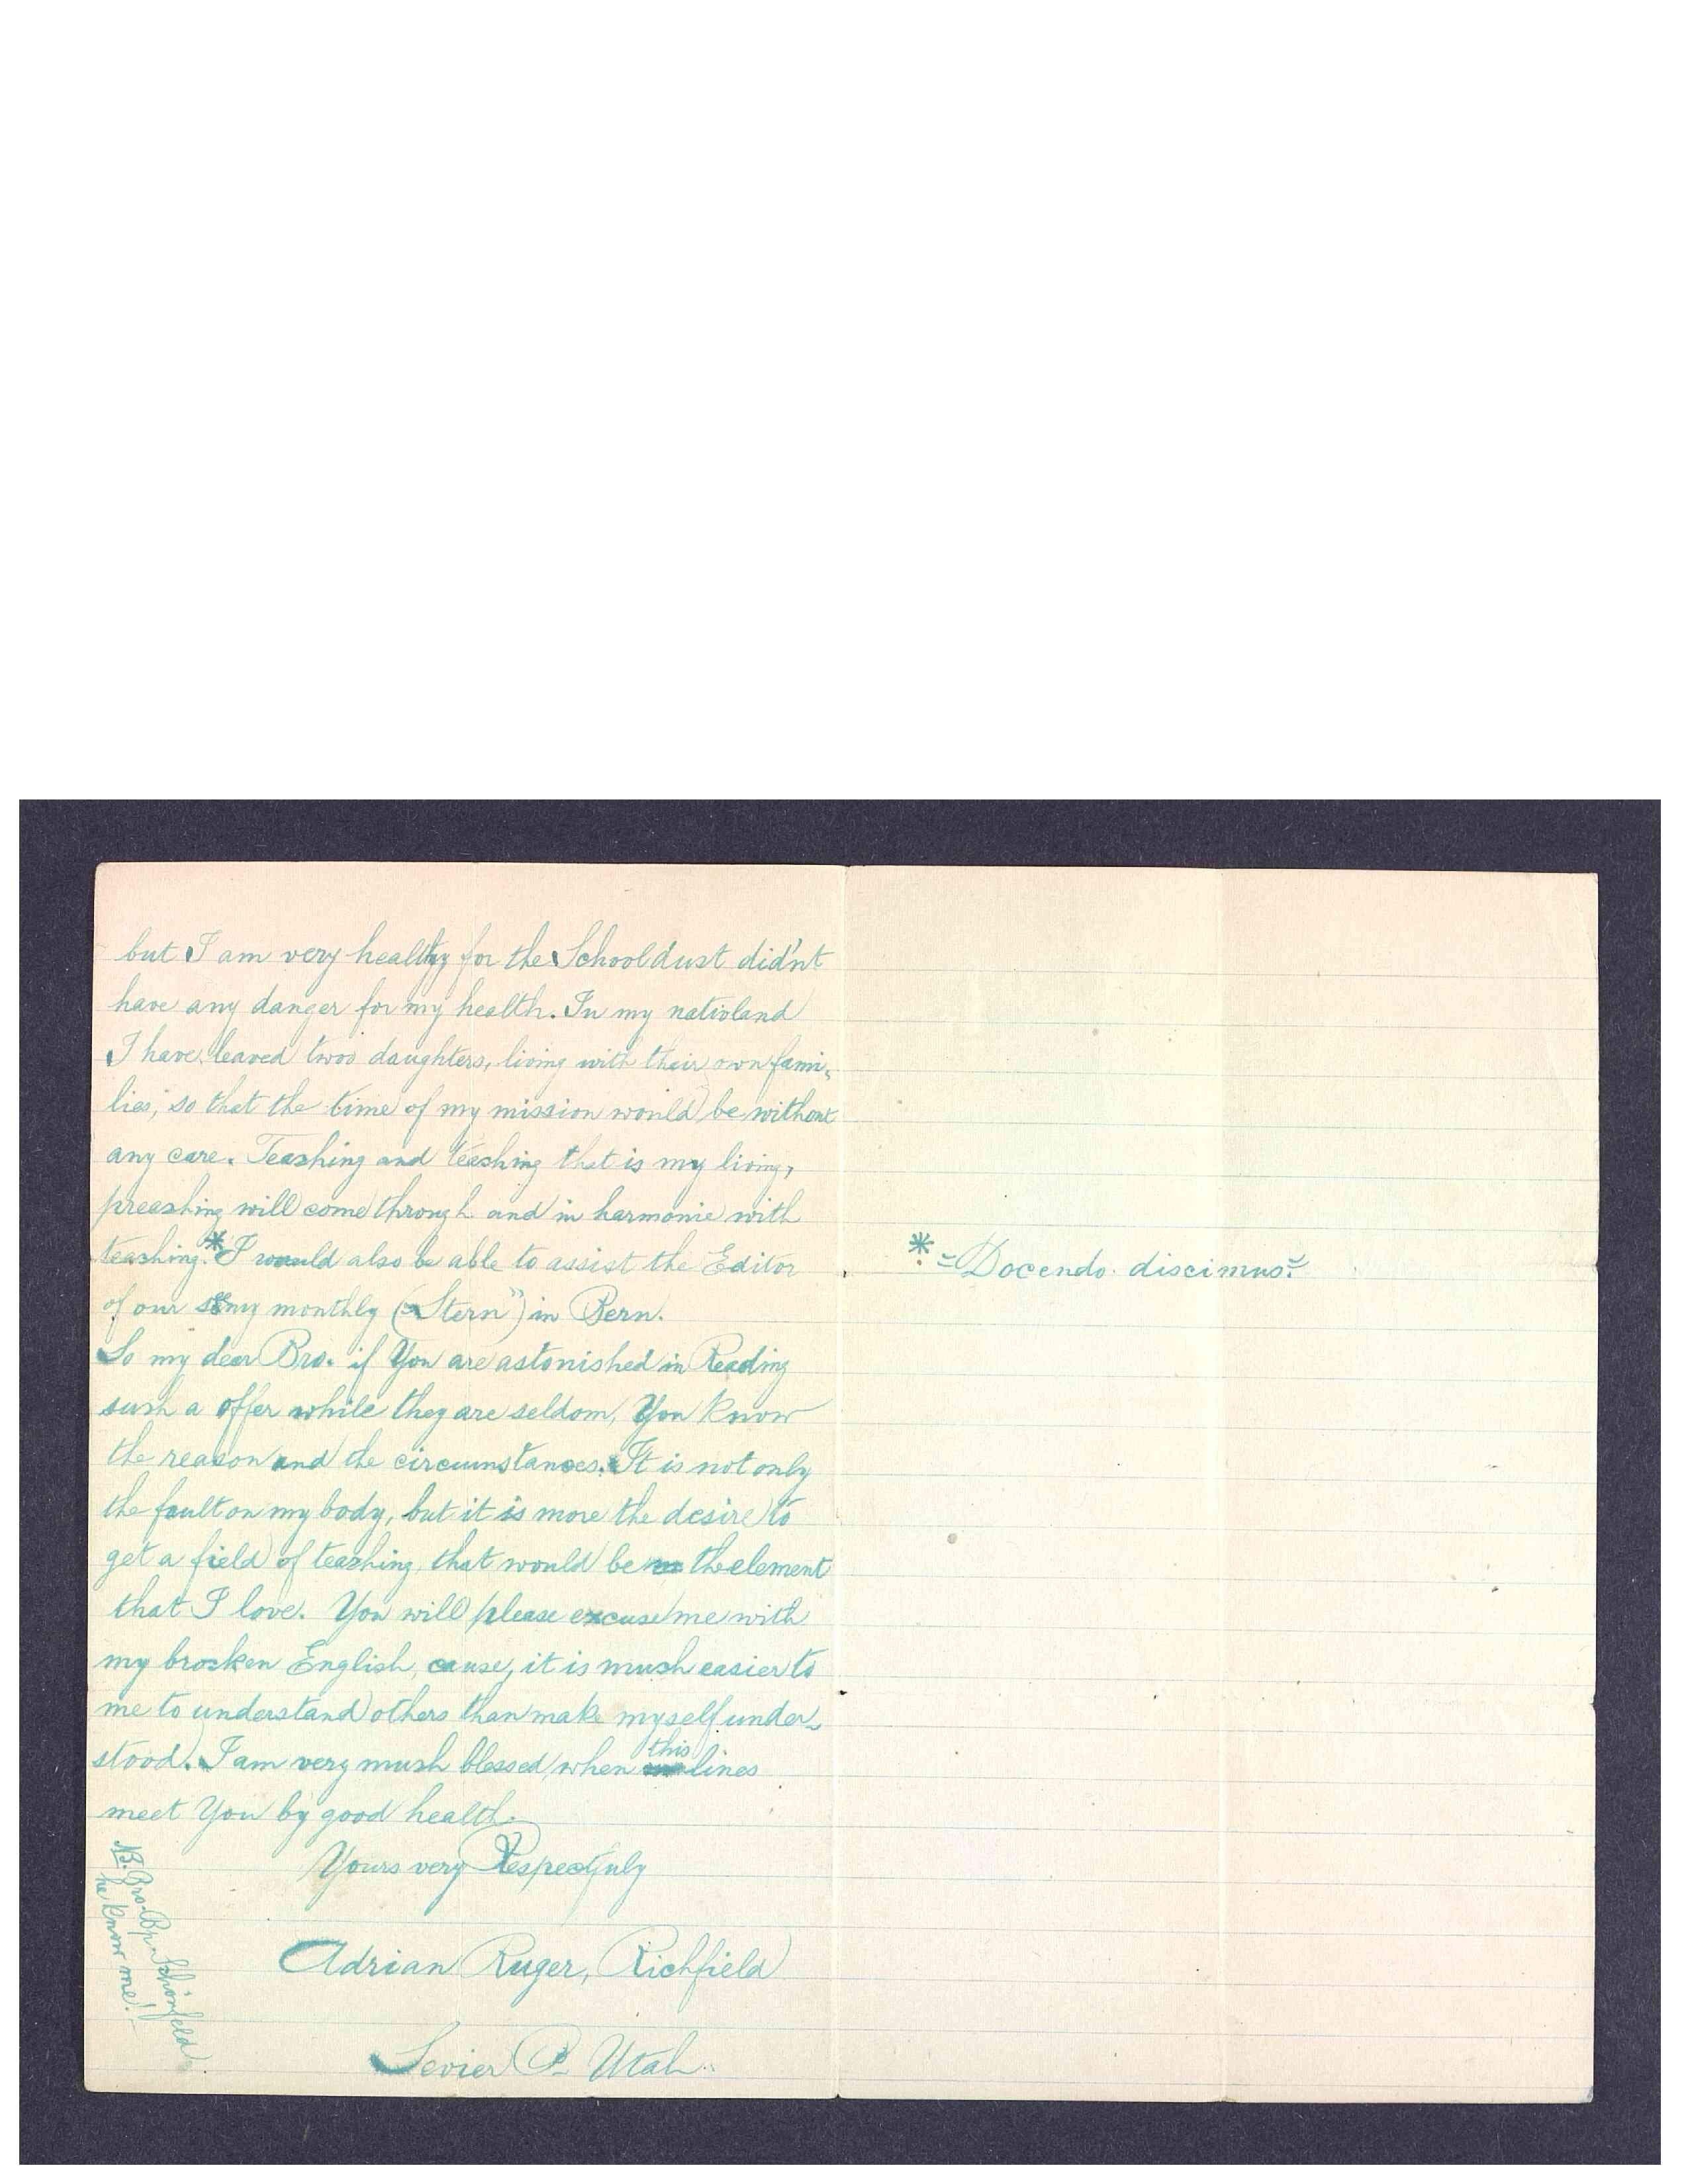 but I am very healthy for the Schooldust did'nt
have any danger for my health. In my nativland
I have leaved twoo daughters, living with their own fami-
lies, so that the time of my mission would be without
any care. Teashing and teashing that is my living,
preashing will come through and in harmonie with
teashing.* I would also be able to assist the Editor
of our monthly („Stern") in Bern.
So my dear Bro. if You are astonished in Reading
sush a offer while they are seldom, You know
the reason and the circumstances. It is not only
the fault on my body, but it is more the desire to
get a field of teashing, that would be the element
that I love. You will please excuse me with
my brocken English, cause, it is mush easier to
me to understand others than make myself under-
stood. I am very mush blessed, when this lines
meet You by good health.
Yours very Respectfuly
Adrian Ruger, Richfield
Sevier Utah.
NB. Bro. Bp. Schönfeld
he know me!-
* „Docendo discimus."